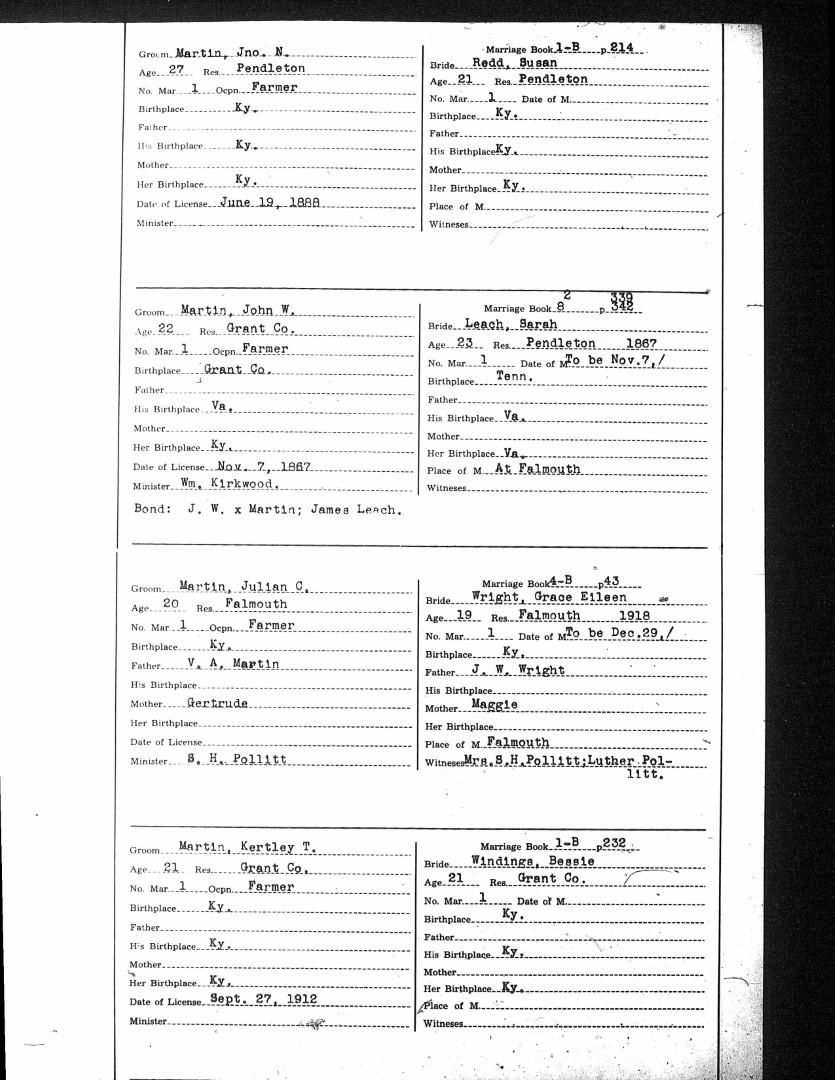 Groom Martin, Jno. N.
Age 27 Res. Pendleton
No. Mar 1 Ocpn. Farmer
Birthplace Ky.
Father
His Birthplace Ky.
Mother
Her Birthplace Ky.
Date of License June 19, 1888
Minister
Marriage Book 1-B p. 214
Bride Redd, Susan
Age 21 Res. Pendleton
No. Mar. 1 Date of M.
Birthplace Ky.
Father
His Birthplace Ky.
Mother
Her Birthplace Ky.
Place of M.
Witneses
Groom Martin, John W.
Age 22 Res. Grant Co.
No. Mar. 1 Ocpn. Farmer
Birthplace Grant Co.
Father
His Birthplace Va.
Mother
Her Birthplace Ky.
Date of License Nov. 7, 1867
Minister Wm. Kirkwood.
Bond: J. W. x Martin; James Leach.
2 339
Marriage Book 8 p. 342
Bride Leach, Sarah
Age 23 Res. Pendleton 1867
No. Mar. 1 Date of M To be Nov.7,/
Birthplace Tenn.
Father
His Birthplace Va.
Mother
Her Birthplace Va.
Place of M. At Falmouth
Witneses
Groom Martin, Julian C.
Age 20 Res. Falmouth
No. Mar. 1 Ocpn. Farmer
Birthplace Ky.
Father V. A. Martin
His Birthplace
Mother Gertrude
Her Birthplace
Date of License
Minister S. H. Pollitt
Marriage Book 4-B p43
Bride Wright, Grace Eileen
Age 19 Res. Falmouth 1918
No. Mar. 1 Date of M To be Dec.29,/
Birthplace Ky.
Father J. W. Wright
His Birthplace
Mother Maggie
Her Birthplace
Place of M. Falmouth
Witneses Mrs.S.H.Pollitt;Luther Pol-
litt.
Groom Martin, Kertley T.
Age 21 Res. Grant Co.
No. Mar. 1 Ocpn. Farmer
Birthplace Ky.
Father
His Birthplace Ky.
Mother
Her Birthplace Ky.
Date of License Sept. 27, 1912
Minister
Marriage Book 1-B p232
Bride Windings, Bessie
Age 21 Res. Grant Co.
No. Mar. 1 Date of M.
Birthplace Ky.
Father
His Birthplace Ky.
Mother
Her Birthplace Ky.
Place of M.
Witneses